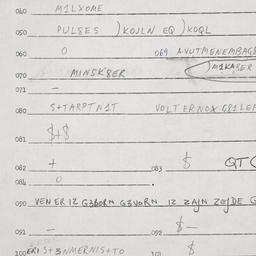 040 M1LXOME
050 PULSES )KOJLN EQ )KOQL
060 O 069
070 MINSK8ER )M1KA8ER
071 -
080 S+TARPTN1T VOLTERNOX G81LEF
081 $+$
082 + 083 $ QTC
084 O
090 VEN ER IZ G3BORN G3VORN IZ ZAJN ZOJDE G
091 - 092 $-
100 ER1 S+3NMERNIS+TO 101 $